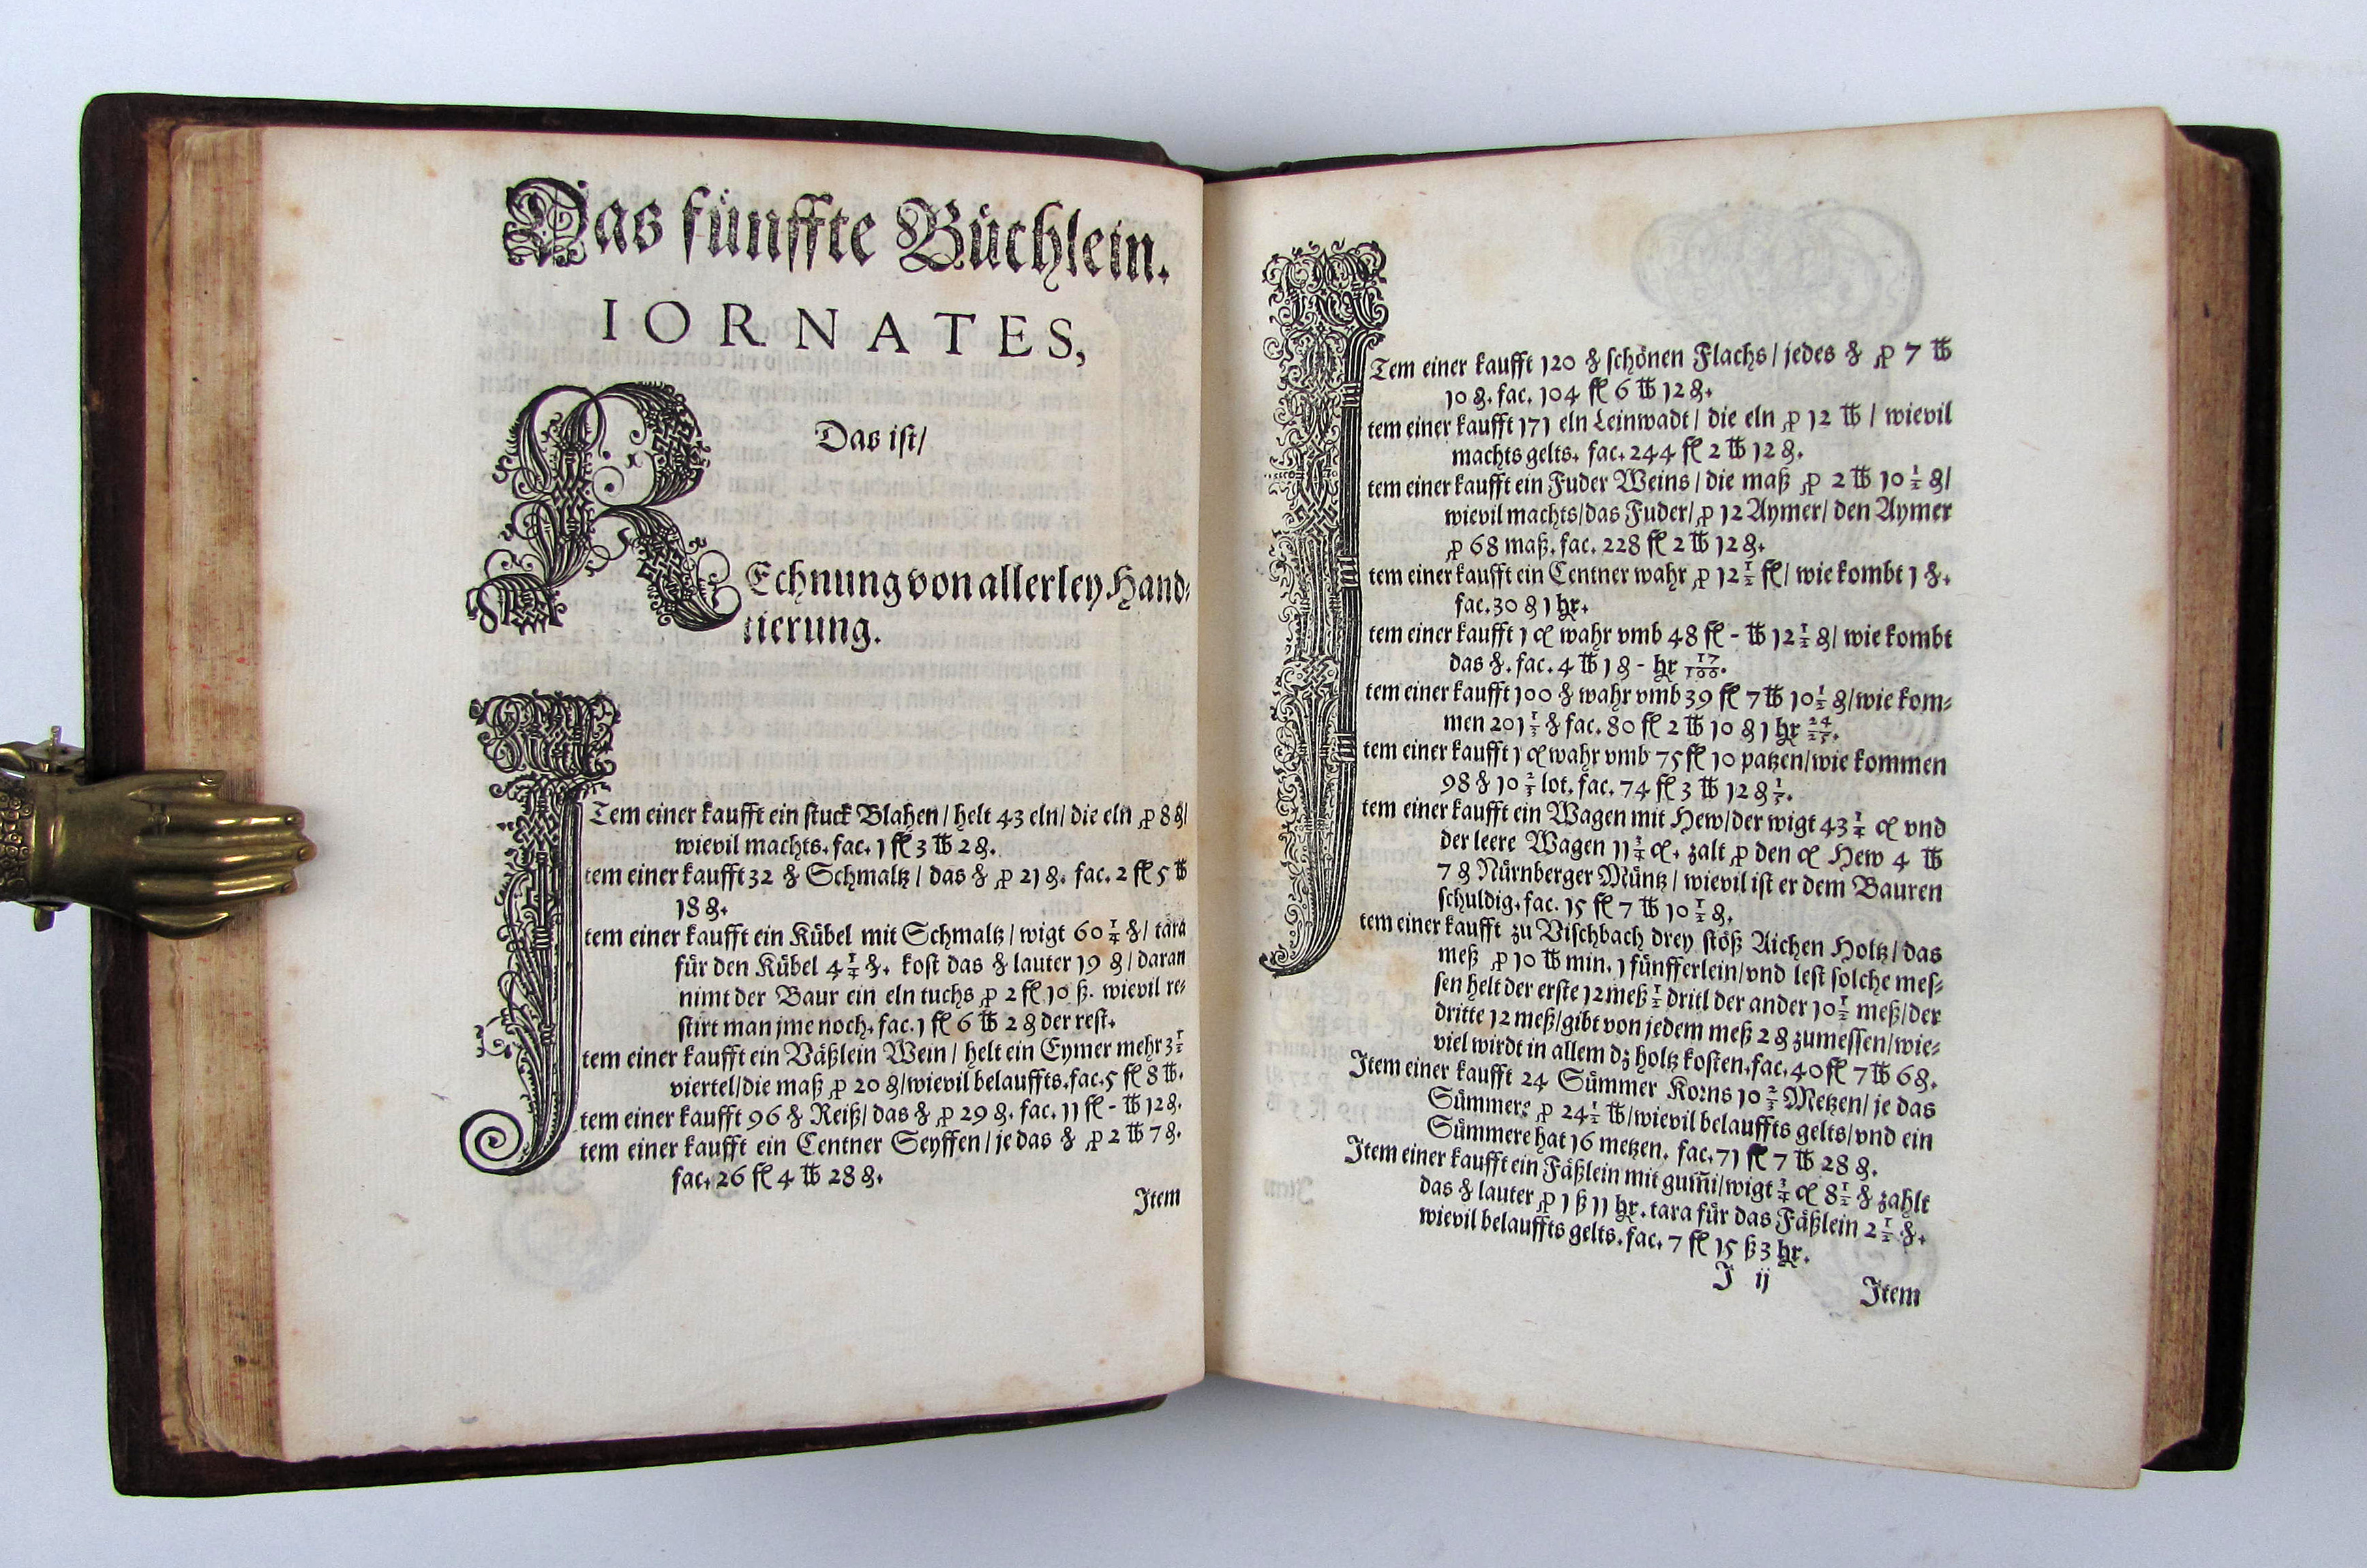 Das fünffte Büchlein.
IORNATES,
Das ist/
REchnung von allerley Hand-
tierung.
ITem einer kaufft ein stuck Blahen / helt 43 eln / die eln ꝓ 8 ₰/
wievil machts. fac. 1 fl 3 ℔ 2 ₰.
tem einer kaufft 32 ₰ Schmaltz / das ₰ ꝓ 21 ₰. fac. 2 fl 5 ℔
18 ₰.
tem einer kaufft ein Kübel mit Schmaltz / wigt 60 1/4 ₰/ tara
für den Kübel 4 1/4 ₰. kost das ₰ lauter 19 ₰/ daran
nimt der Baur ein eln tuchs ꝓ 2 fl 10 ß. wievil re-
stirt man jme noch. fac. 1 fl 6 ℔ 2 ₰ der rest.
tem einer kaufft ein Väßlein Wein / helt ein Eymer mehr 3 1/2
viertel/die maß ꝓ 20 ₰/wievil belauffts. fac. 5 fl 8 ℔.
tem einer kaufft 96 ₰ Reiß/ das ₰ ꝓ 29 ₰. fac. 11 fl - ℔ 12 ₰.
tem einer kaufft ein Centner Seyffen / je das ₰ ꝓ 2 ℔ 7 ₰.
fac. 26 fl 4 ℔ 28 ₰.
Item
ITem einer kaufft 120 ₰ schönen Flachs / jedes ₰ ꝓ 7 ℔
10 ₰. fac. 104 fl 6 ℔ 12 ₰.
tem einer kaufft 171 eln Leinwadt / die eln ꝓ 12 ℔ / wievil
machts gelts. fac. 244 fl 2 ℔ 12 ₰.
tem einer kaufft ein Fuder Weins / die maß ꝓ 2 ℔ 10 1/2 ₰/
wievil machts/das Fuder/ ꝓ 12 Aymer/ den Aymer
ꝓ 68 maß. fac. 228 fl 2 ℔ 12 ₰.
tem einer kaufft ein Centner wahr ꝓ 12 1/2 fl/ wie kombt 1 ₰.
fac. 30 ₰ 1 hr.
tem einer kaufft 1 ꝯ wahr vmb 48 fl - ℔ 12 1/2 ₰/ wie kombt
das ₰. fac. 4 ℔ 1 ₰ - hr 17/100.
tem einer kaufft 100 ₰ wahr vmb 39 fl 7 ℔ 10 1/2 ₰/wie kom-
men 201 1/2 ₰ fac. 80 fl 2 ℔ 10 ₰ 1 hr 24/25.
tem einer kaufft 1 ꝯ wahr vmb 75 fl 10 patzen/wie kommen
98 ₰ 10 2/3 lot. fac. 74 fl 3 ℔ 12 ₰ 1/5.
tem einer kaufft ein Wagen mit Hew/der wigt 43 1/4 ꝯ vnd
der leere Wagen 11 3/4 ꝯ. zalt ꝓ den ꝯ Hew 4 ℔
7 ₰ Nürnberger Müntz / wievil ist er dem Bauren
schuldig. fac. 15 fl 7 ℔ 10 1/2 ₰.
tem einer kaufft zu Vischbach drey stöß Aichen Holtz / das
meß ꝓ 10 ℔ min. 1 fünfferlein/vnd lest solche mes-
sen helt der erste 12 meß 1/2 dritl der ander 10 1/2 meß/der
dritte 12 meß/gibt von jedem meß 2 ₰ zumessen/wie-
viel wirdt in allem dz holtz kosten. fac. 40 fl 7 ℔ 6 ₰.
Item einer kaufft 24 Sümmer Korns 10 2/3 Metzen / je das
Sümmere ꝓ 24 1/2 ℔/wievil belauffts gelts/vnd ein
Sümmere hat 16 metzen. fac. 71 fl 7 ℔ 28 ₰.
Item einer kaufft ein Fäßlein mit gum̄i/wigt 3/4 ꝯ 8 1/2 ₰ zahlt
das ₰ lauter ꝓ 1 ß 11 hr. tara für das Fäßlein 2 1/2 ₰.
wievil belauffts gelts. fac. 7 fl 15 ß 3 hr.
J ij
Item